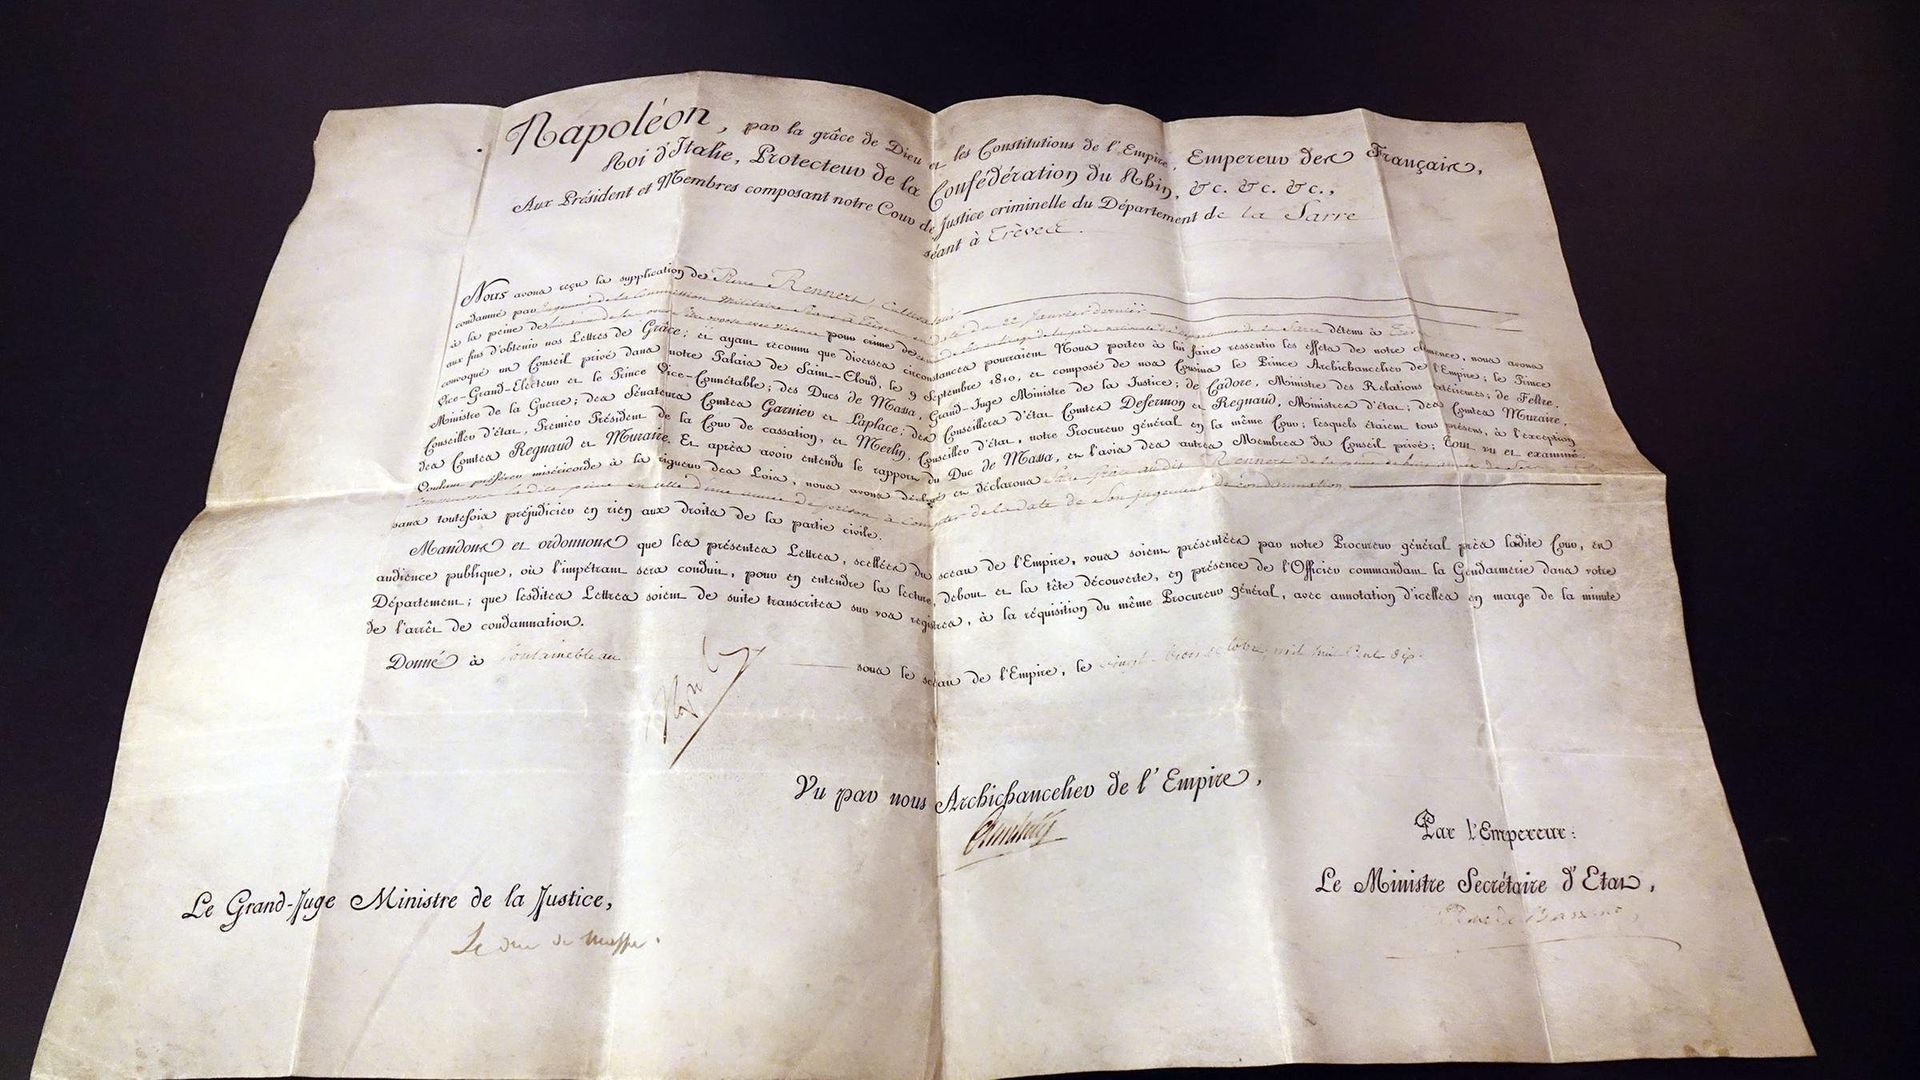 Napoléon, par la grâce de Dieu et les Constitutions de l'Empire, Empereur des Français,
Roi d'Italie, Protecteur de la Confédération du Rhin, &c. &c. &c.,
Aux Président et Membres composant notre Cour de Justice criminelle du Département de la Sarre
séant à Trèves.
Nous avons reçu la supplication de Pierre Rennert Cultivateur
condamné par jugement de la Commission militaire à du 22 Janvier dernier
à la peine de pour crime de garde nationale de la Sarre détenu à
aux fins d'obtenir nos Lettres de Grâce; et ayant reconnu que diverses circonstances pourraient Nous porter à lui faire ressentir les effets de notre clémence, nous avons
convoqué un Conseil privé dans notre Palais de Saint-Cloud, le 9 Septembre 1810, et composé de nos Cousins le Prince Archichancelier de l'Empire; le Prince
Vice-Grand-Electeur et le Prince Vice-Connétable; des Ducs de Massa, Grand-Juge Ministre de la Justice; de Cadore, Ministre des Relations extérieures; de Feltre,
Ministre de la Guerre; des Sénateurs Comtes Garnier et Laplace; des Conseillers d'état Comtes Defermon et Regnaud, Ministres d'état; des Comtes Muraire,
Conseiller d'état, Premier Président de la Cour de cassation, et Merlin, Conseiller d'état, notre Procureur général en la même Cour; lesquels étaient tous présens, à l'exception
des Comtes Regnaud et Muraire. Et après avoir entendu le rapport du Duc de Massa, et l'avis des autres Membres du Conseil privé; Tout vu et examiné.
Voulant préférer miséricorde à la rigueur des Lois, nous avons déclaré et déclarons faire grâce audit Rennert de la peine de
commuer la dite peine en celle d'une année de prison à compter de la date de son jugement de condamnation
sans toutefois préjudicier en rien aux droits de la partie civile.
Mandons et ordonnons que les présentes Lettres, scellées du sceau de l'Empire, vous soient présentées par notre Procureur général près ladite Cour, en
audience publique, où l'impétrant sera conduit, pour en entendre la lecture, debout et la tête découverte, en présence de l'Officier commandant la Gendarmerie dans votre
Département; que lesdites Lettres soient de suite transcrites sur vos registres, à la réquisition du même Procureur général, avec annotation d'icelles en marge de la minute
de l'arrêt de condamnation.
Donné à Fontainebleau sous le sceau de l'Empire, le vingt trois octobre mil huit cent dix.
Vu par nous Archichancelier de l'Empire,
Par l'Empereur:
Le Ministre Secrétaire d'Etat,
Le Grand-Juge Ministre de la Justice,
Le duc de Bassano,
Le duc de Massa.